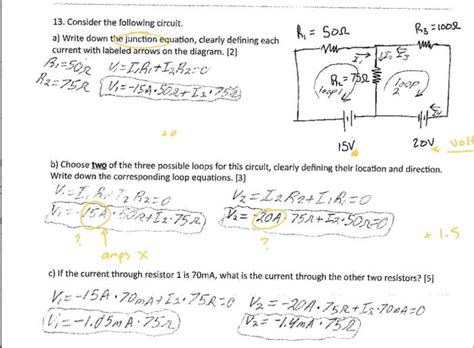 13. Consider the following circuit.
a) Write down the junction equation, clearly defining each
current with labeled arrows on the diagram. [2]
R₁=50Ω V₁=I₁R₁+I₂R₂=0
R₂=75Ω V₁=-15A·50Ω+I₂·75Ω
+0
R₁=50Ω
R₃=100Ω
I₁
I₃
R₂=75Ω
loop 1
loop 2
15V
20V
Volt
b) Choose two of the three possible loops for this circuit, clearly defining their location and direction.
Write down the corresponding loop equations. [3]
V₁=I₁R₁+I₂R₂=0 V₂=I₂R₂+I₁R₁=0
V₁=-15A·50Ω+I₂·75Ω V₂=-20A·75Ω+I₂·50Ω=0
+1.5
? ?
amps X
c) If the current through resistor 1 is 70mA, what is the current through the other two resistors? [5]
V₁=-15A·70mA+I₂·75Ω=0 V₂=-20A·75Ω+I₂·70mA=0
V₁=-1.05mA·75Ω V₂=-1.4mA·75Ω